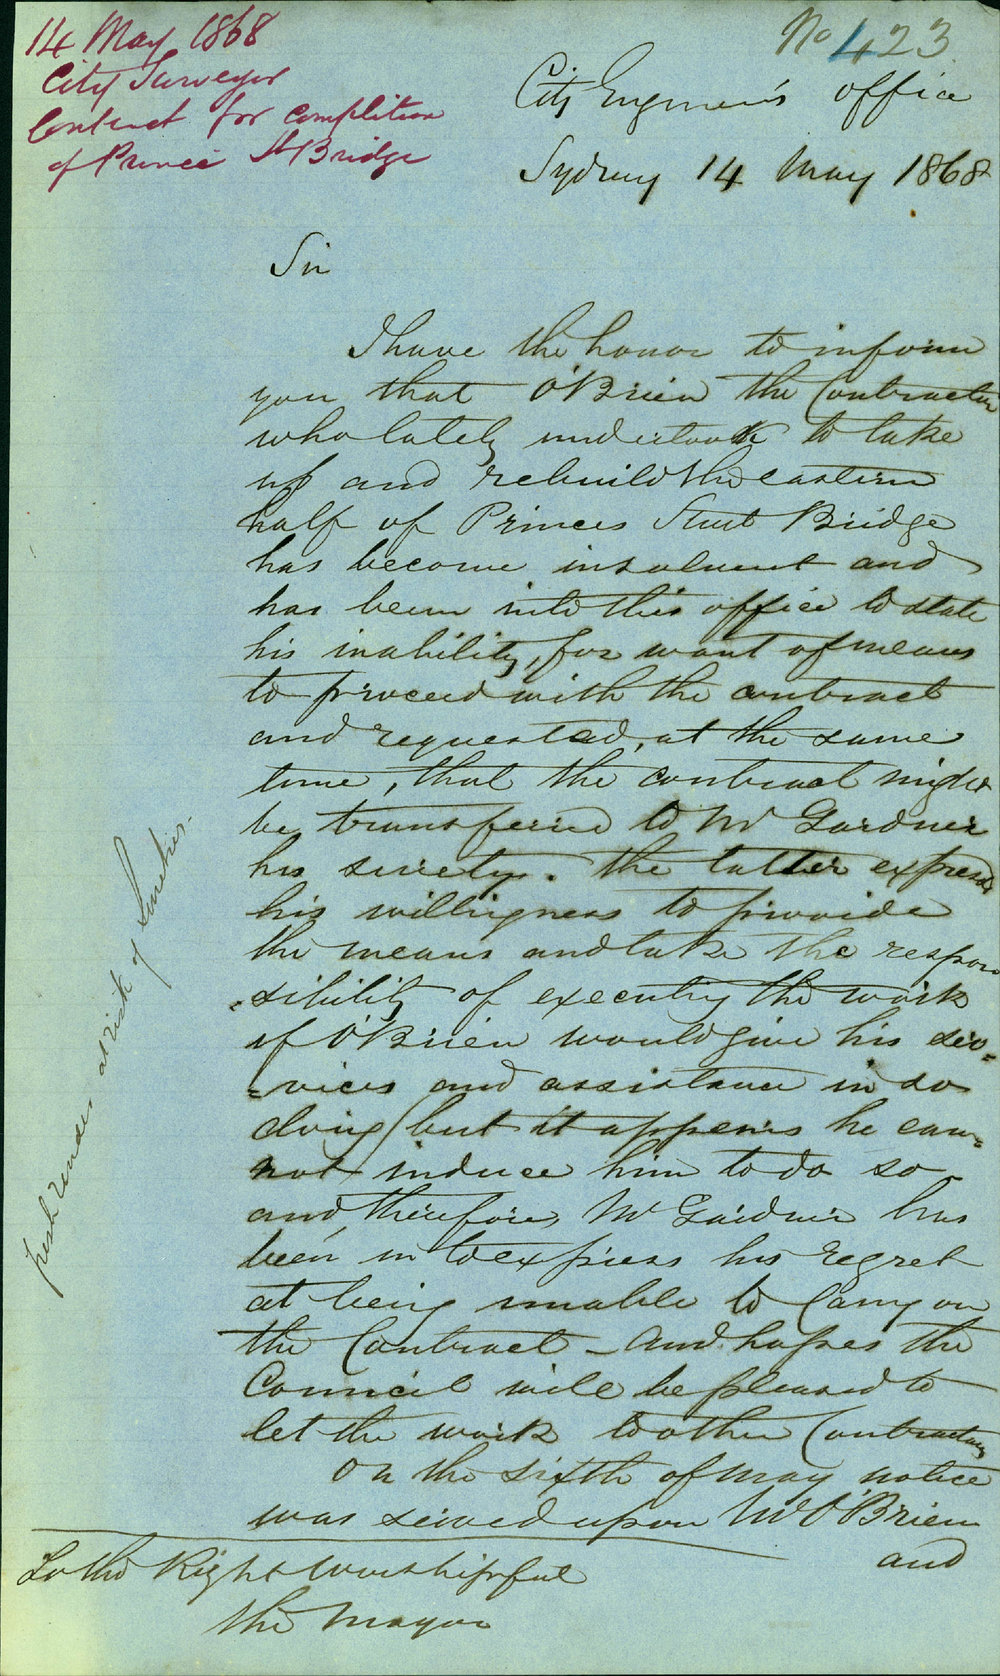 14 May 1868
City Surveyor
Contract for Complition
of Princes St Bridge
No 423
City Engineer's Office
Sydney 14 May 1868
Sir
I have the honor to inform
you that O'Brien the Contractor
who lately undertook to take
up and rebuild the eastern
half of Princes Street Bridge
has become insolvent and
has been into this office to state
his inability, for want of means
to proceed with the contract
and requested, at the same
time, that the contract might
be transferred to Mr Gardner
his surety. The latter express'd
his willingness to provide
the means and take the respon
-sibility of executing the work
if O'Brien would give his ser-
-vices and assistance in so
doing (but it appears he can-
not induce him to do so
and, therefore, Mr Gardner has
been in to express his regret
at being unable to Carry on
the Contract - and hopes the
Council will be pleased to
let the work to other Contractors
On the sixth of May notice
was served upon Mr O'Brien
and
To the Right Worshipful
the Mayor
fresh tender at risk of Sureties.